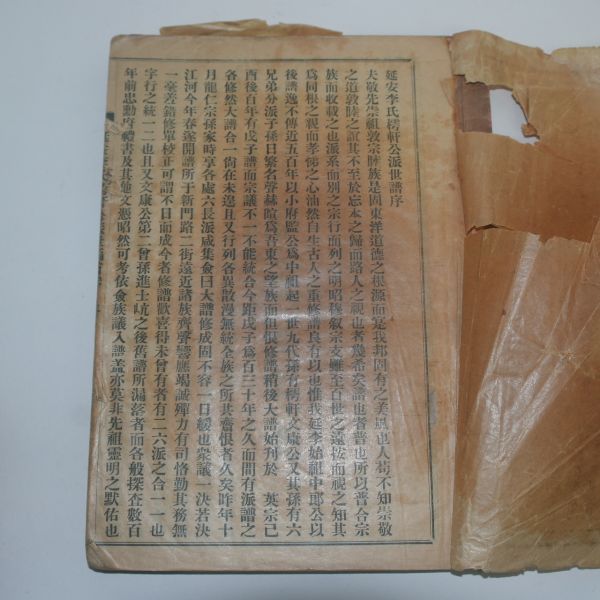 延安李氏樗軒公派世譜序
夫敬先崇祖敦宗睦族是固東洋道德之根源而是我邦固有之美風也人苟不知崇敬
之道敦睦之誼其不至於忘本之歸而路人之視也者幾希矣譜也者普也所以普合宗
族而收載之也派系而別之宗行而列之明昭穆叙宗支雖至百世之遠按而視之知其
爲同根之親而孝悌之心油然自生古人之重修譜良有以也惟我延李始祖中郎公以
後譜逸不傳近五百年以小府監公爲中祖起一世九代孫有樗軒文康公又其孫有六
兄弟分派子孫日繁名聲赫喧爲吾東之望族而但恨修譜稍後大譜始刋於 英宗己
酉後百年有戊子譜而宗議不一不能統合今距戊子爲百三十年之久而間有派譜之
各修然大譜合一尙在未遑且又行列各異散漫無統全族之所共齋恨者久矣昨年十
月龍仁宗孫家時享各處六長派咸集僉曰大譜修成固不容一日緩也衆議一決若決
江河今年春遂開譜所于新門路二街遠近諸族齊聲響應竭誠殫力有司恪勤其務無
一毫差錯修單校正可謂不日而成今者修譜歡喜得未曾有者有二六派之合一一也
字行之統一二也且又文康公第二曾孫進士㞳之後舊譜所漏落者而各般探査數百
年前忠勳府禮書及其他文憑昭然可考依僉族議入譜盖亦莫非先祖靈明之默佑也